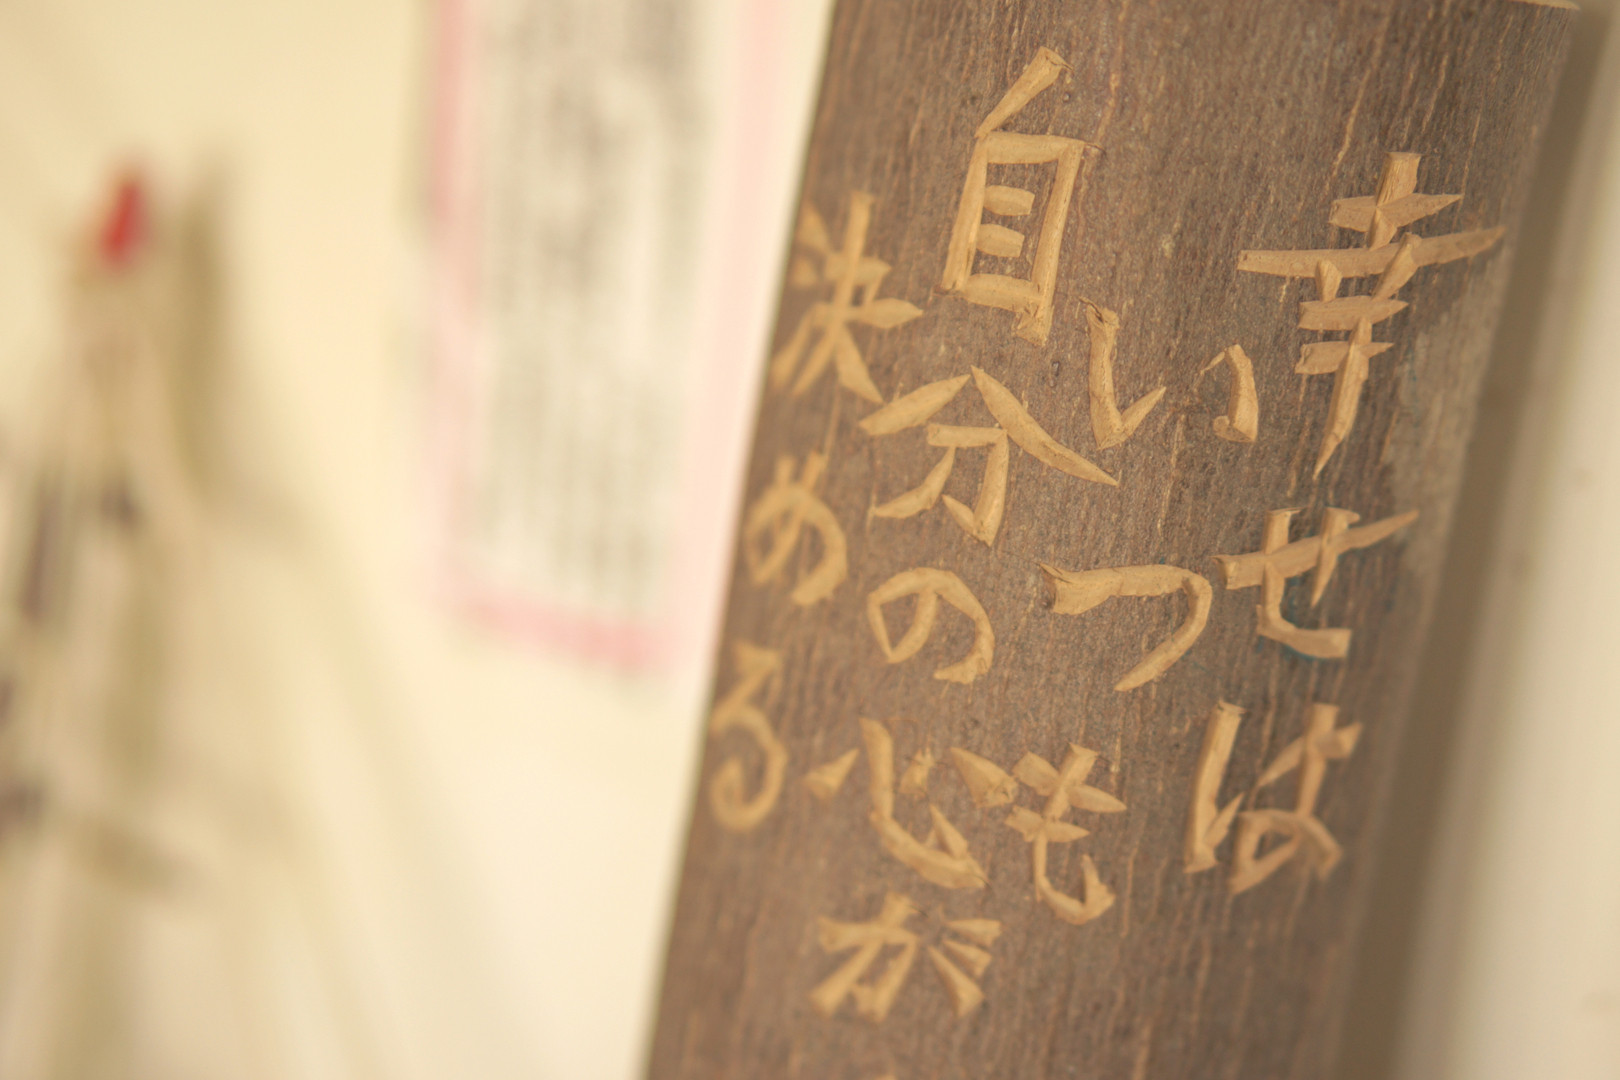 幸せは
いつも
自分の心が
決める